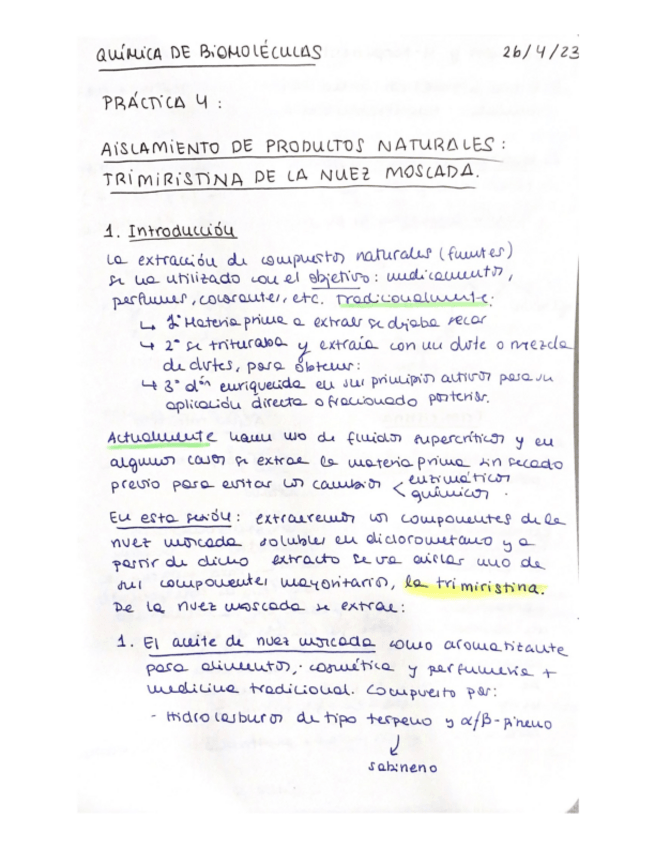 QUÍMICA DE BIOMOLÉCULAS 26/4/23
PRÁCTICA 4:
AISLAMIENTO DE PRODUCTOS NATURALES:
TRIMIRISTINA DE LA NUEZ MOSCADA.
1. Introducción
La extracción de compuestos naturales (fuentes)
se ha utilizado con el objetivo: medicamentos,
perfumes, colorantes, etc. Tradicionalmente:
↳ 1º Materia prima a extraer se dejaba secar
↳ 2º se trituraba y extraía con un dvte o mezcla
de dvtes, para obtener:
↳ 3º dºn enriquecida en sus principios activos para su
aplicación directa o fraccionado posterior.
Actualmente hacen uso de fluidos supercríticos y en
algunos casos se extrae la materia prima sin secado
previo para evitar los cambios < enzimáticos
químicos.
En esta sesión: extraeremos los componentes de la
nuez moscada solubles en diclorometano y a
partir de dicho extracto se va aislar uno de
sus componentes mayoritarios, la trimiristina.
De la nuez moscada se extrae:
1. El aceite de nuez moscada como aromatizante
para alimentos, cosmética y perfumería +
medicina tradicional. Compuesto por:
- Hidrocarburos de tipo terpeno y α/β-pineno
↓
sabineno